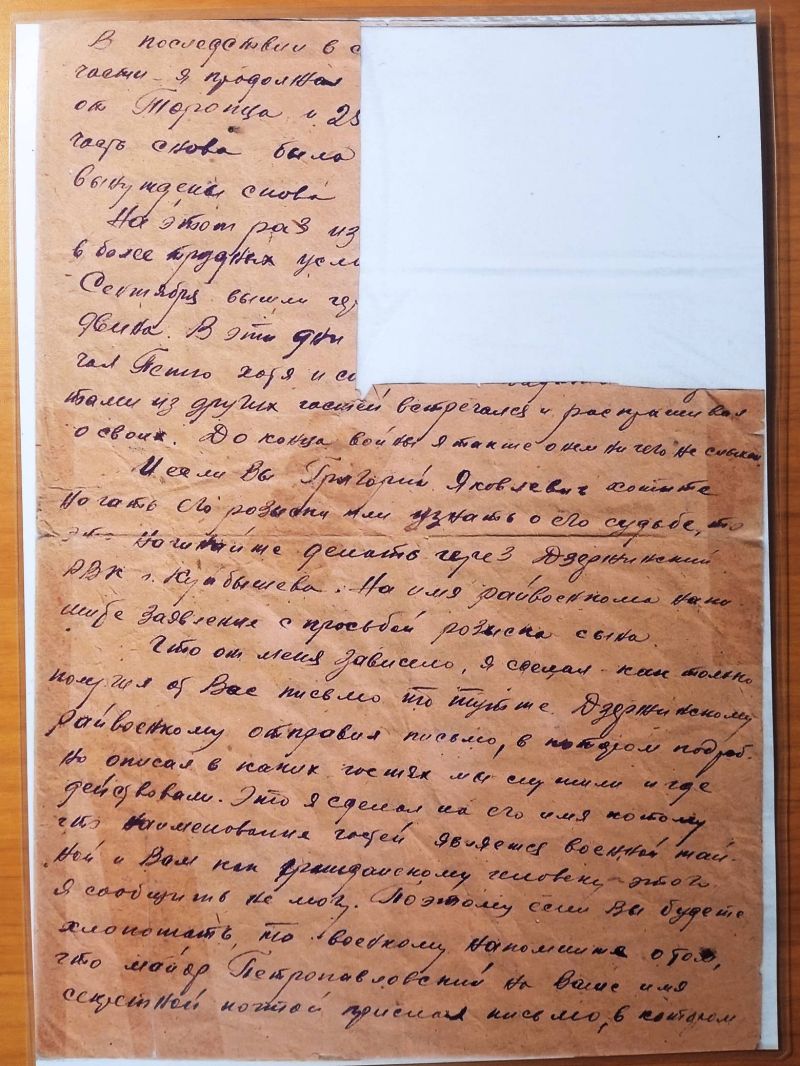 В последствии в с
части я продолжал
от Торопца и 29
часть снова была
вынуждены снова
На этот раз из
в более трудных усло
Сентября вышли
Двина. В эти дни
чал Петю хотя и со
тами из других частей встречался и распрашивал
о своих. До конца войны я также о нем ничего не слыхал.
И если Вы Григорий Яковлевич хотите
начать его розыски или узнать о его судьбе, то
это начинайте делать через Дзержинский
РВК г. Куйбышева. На имя райвоенкома напи
шите заявление с просьбой розыска сына.
Что от меня зависело, я сделал как только
получил от Вас письмо то тутже Дзержинскому
райвоенкому отправил письмо, в котором подроб-
но описал в каких частях мы служили и где
действовали. Это я сделал на его имя потому
что наименование частей является военной тай-
ной и Вам как гражданскому человеку этого
я сообщить не могу. Поэтому если Вы будете
хлопотать, то военкому напомните о том,
что майор Петропавловский на Ваше имя
секретной почтой прислал письмо, в котором